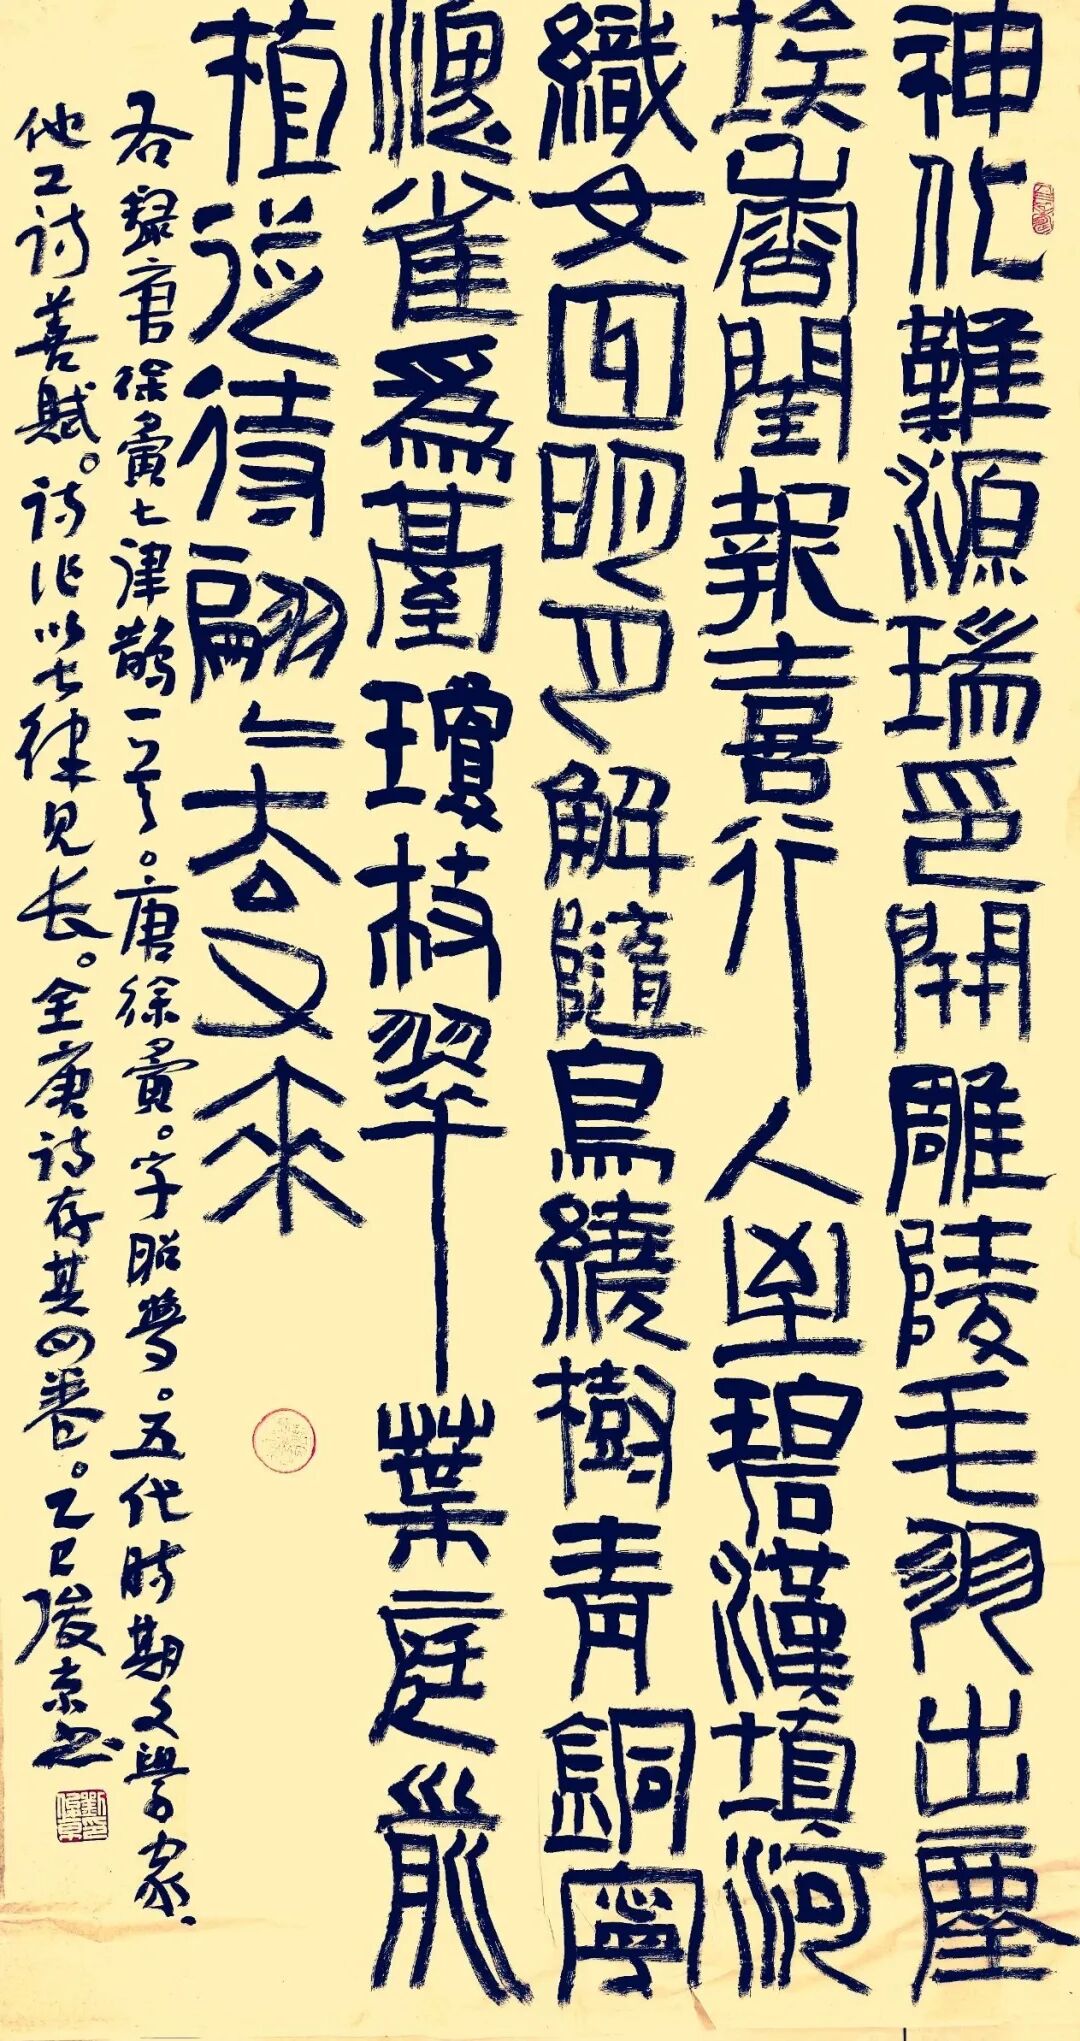 神化難源瑞即開雕陵毛羽出塵
埃香閨報喜行人至碧漢填河
織女回明月解隨烏繞樹青銅寧
愧雀爲臺瓊枝翠葉庭前
植從待翩〻去又來
右録唐徐夤七律鵲一首。唐徐夤。字昭夢。五代时期文學家、
他工诗善賦。诗作以七律見长。全唐诗存其四卷。乙巳俊京书